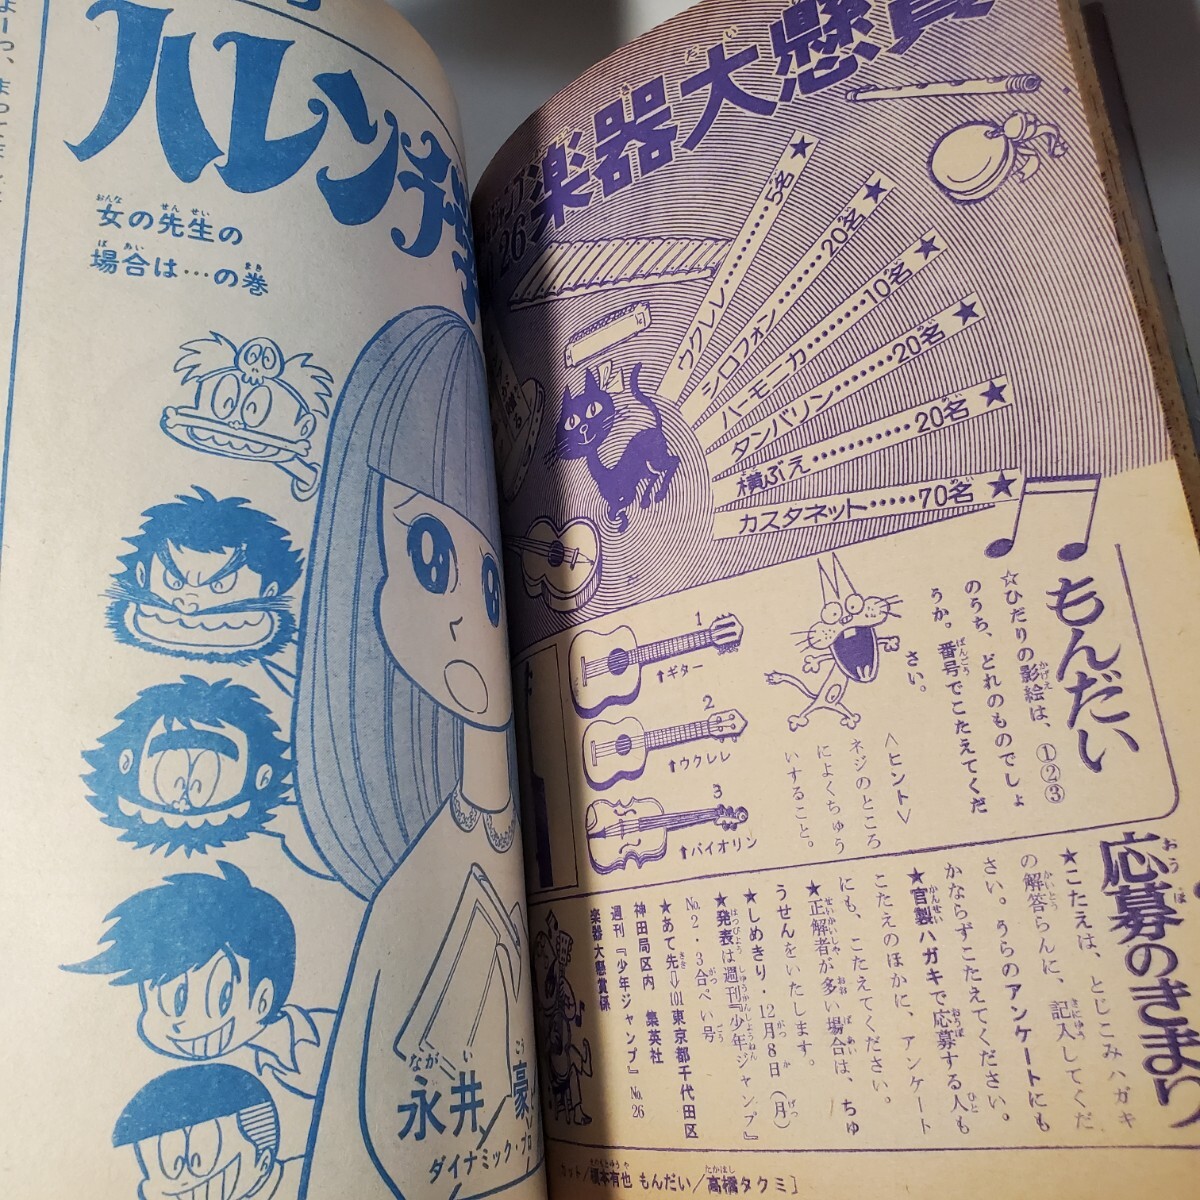 ハレンチ学
女の先生の
場合は…の巻
永井豪
ダイナミック・プロ
楽器大懸賞
26
ウクレレ……5名★
シロフォン……20名★
ハーモニカ……10名★
タンバリン……20名★
横ぶえ……20名★
カスタネット……70名★
もんだい
☆ひだりの影絵は、①②③
のうち、どれのものでしょ
うか。番号でこたえてくだ
さい。
<ヒント>
ネジのところ
によくちゅう
いすること。
1
↑ギター
2
↑ウクレレ
3
↑バイオリン
応募のきまり
★こたえは、とじこみハガキ
の解答らんに、記入してくだ
さい。うらのアンケートにも
かならずこたえてください。
★官製ハガキで応募する人も
こたえのほかに、アンケート
にも、こたえてください。
★正解者が多い場合は、ちゅ
うせんをいたします。
★しめきり・12月8日(月)
★発表は週刊『少年ジャンプ』
No.2・3合ぺい号
★あて先⇨101東京都千代田区
神田局区内 集英社
週刊『少年ジャンプ』No.26
楽器大懸賞係
カット/榎本有也 もんだい/高橋タクミ]